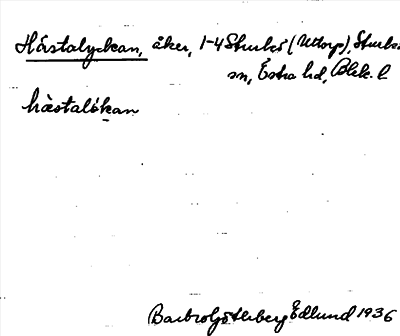 Hästalyckan, åker, 1-4 Sturkö (Uttorp), Sturkö
sn, Östra hd, Blek. l
hàstalökan
Barbro Götlberg Edlund 1936